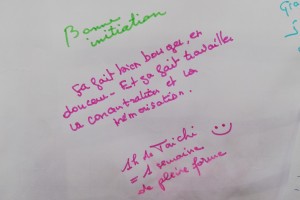 Bonne
initiation
ça fait bien bouger, en
douceur. Et ça fait travailler
la concentration et la
mémorisation.
1h de Taichi
= 1 semaine
de pleine forme
Gia